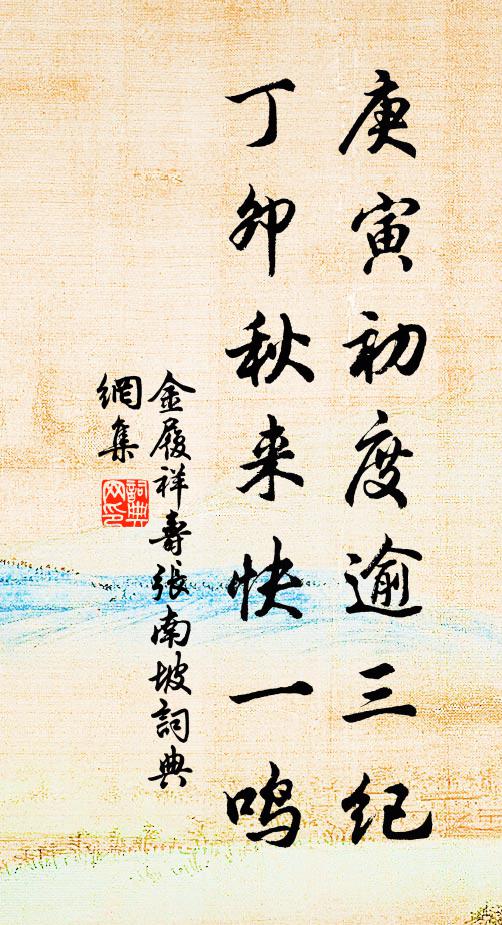 庚寅初度逾三纪
丁卯秋来快一鸣
金履祥寿張南坡詞典
網集
詞典
网印